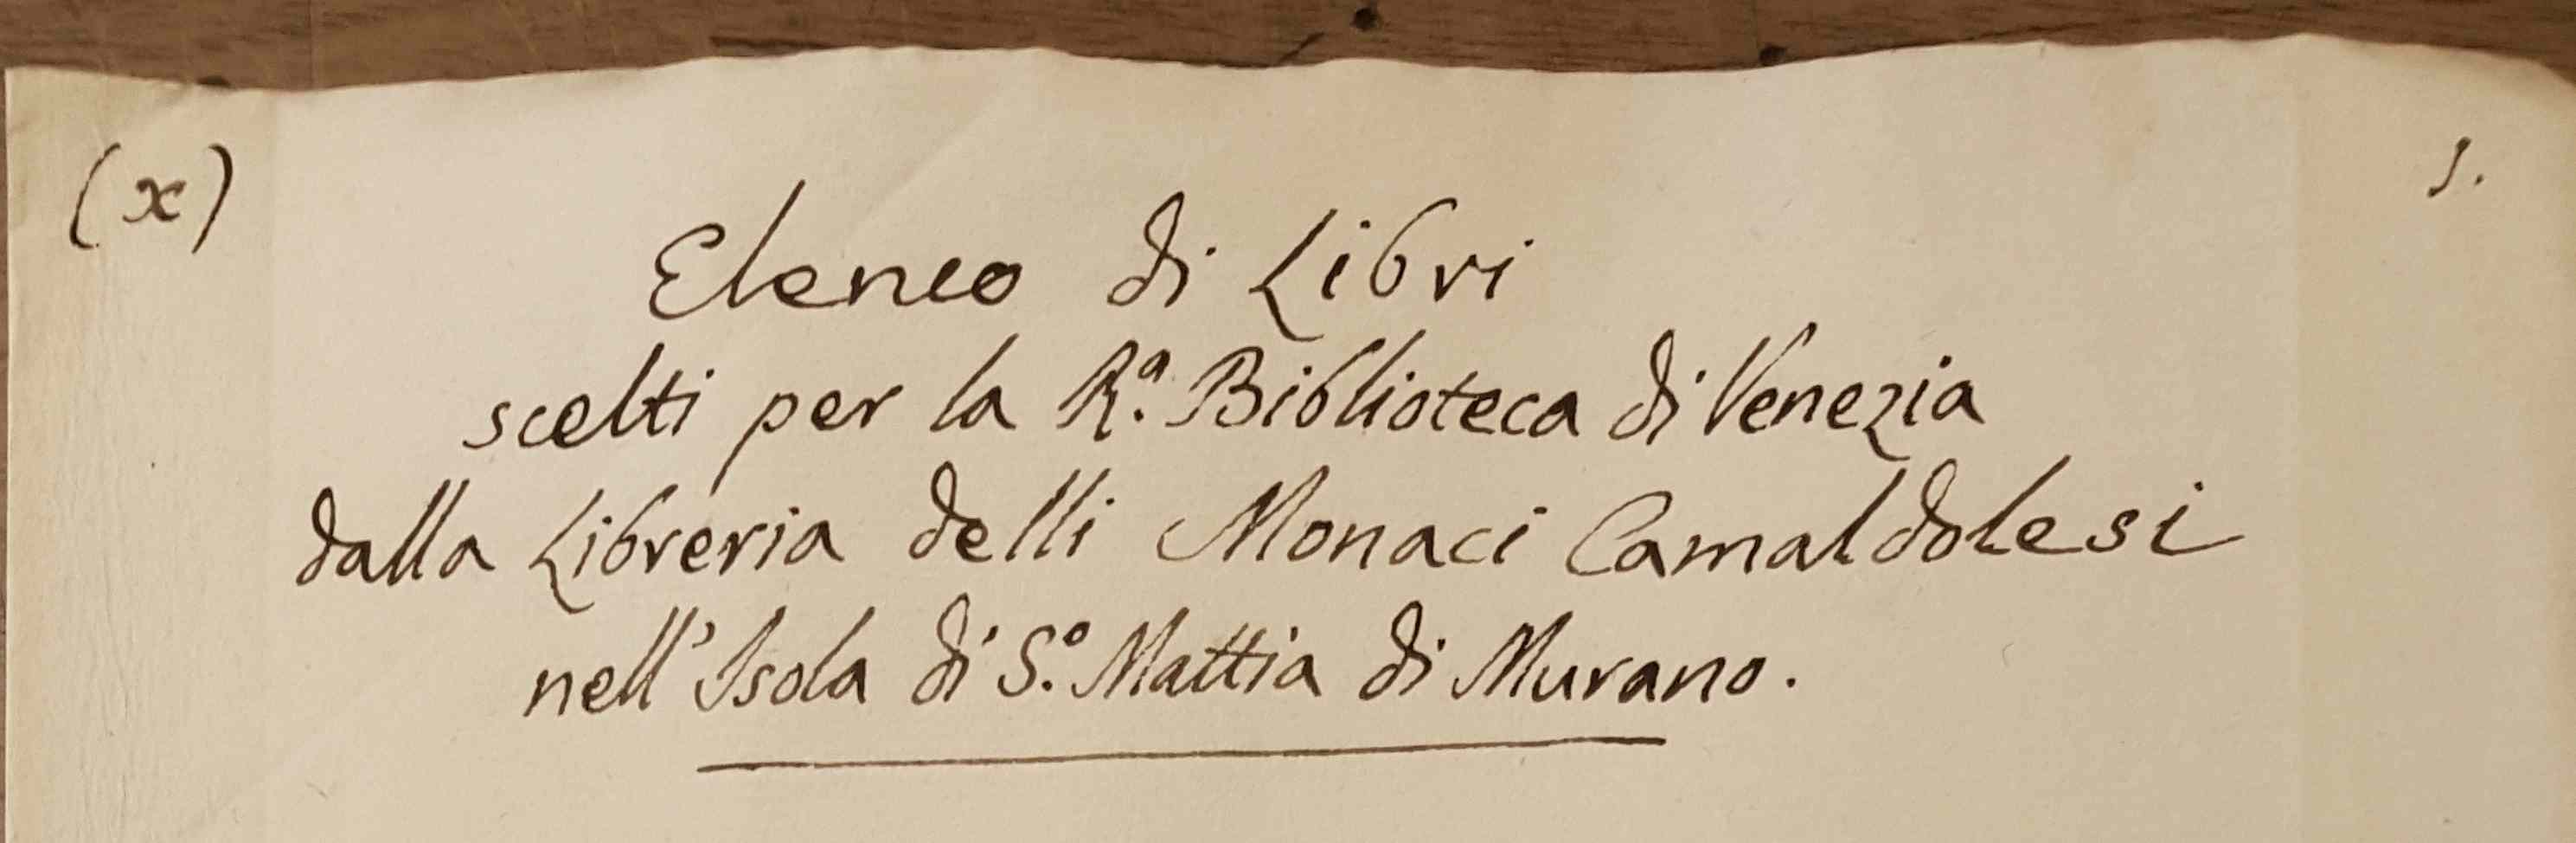 (x) 1.
Elenco di Libri
scelti per la R.ª Biblioteca di Venezia
dalla Libreria delli Monaci Camaldolesi
nell'Isola di S.º Mattia di Murano.